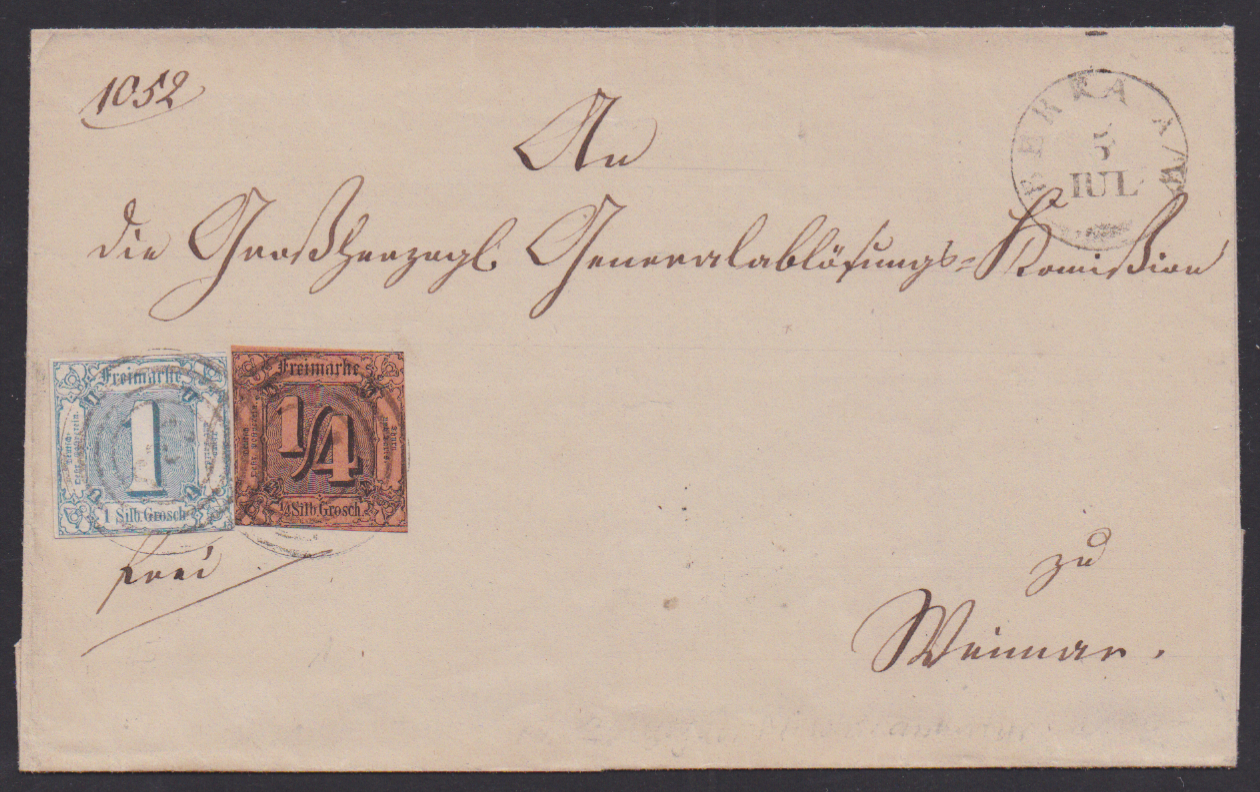 1052
An
BERKA A/W
5
IUL
die Großherzogl. Generalablösungs-Komißion
Freimarke
1
1 Silb. Grosch.
Freimarke
1/4
1/4 Silb. Grosch.
frei
zu
Weimar.